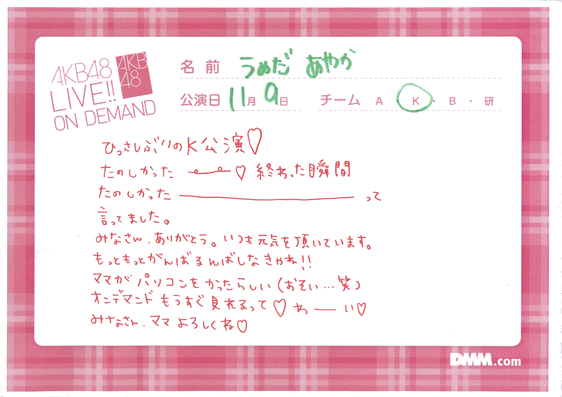 AKB48
LIVE!!
ON DEMAND
AKB
48
名前 うめだ あやか
公演日 11月9日 チーム A・K・B・研
ひっさしぶりのK公演♡
たのしかった〜♡ 終わった瞬間
たのしかった――――って
言ってました。
みなさん、ありがとう。いつも元気を頂いています。
もっともっとがんばるんばしなきゃね!!
ママがパソコンをかったらしい(おそい…笑)
オンデマンドもうすぐ見れるって♡わーい♡
みなさん、ママよろしくね♡
DMM.com